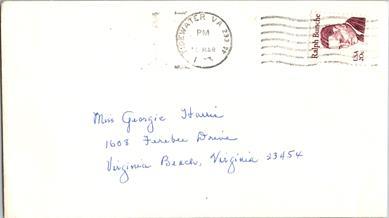 TIDEWATER VA
PM
MAR
Ralph Bunche
USA
20c
Miss Georgie Harris
1608 Ferebee Drive
Virginia Beach, Virginia 23454